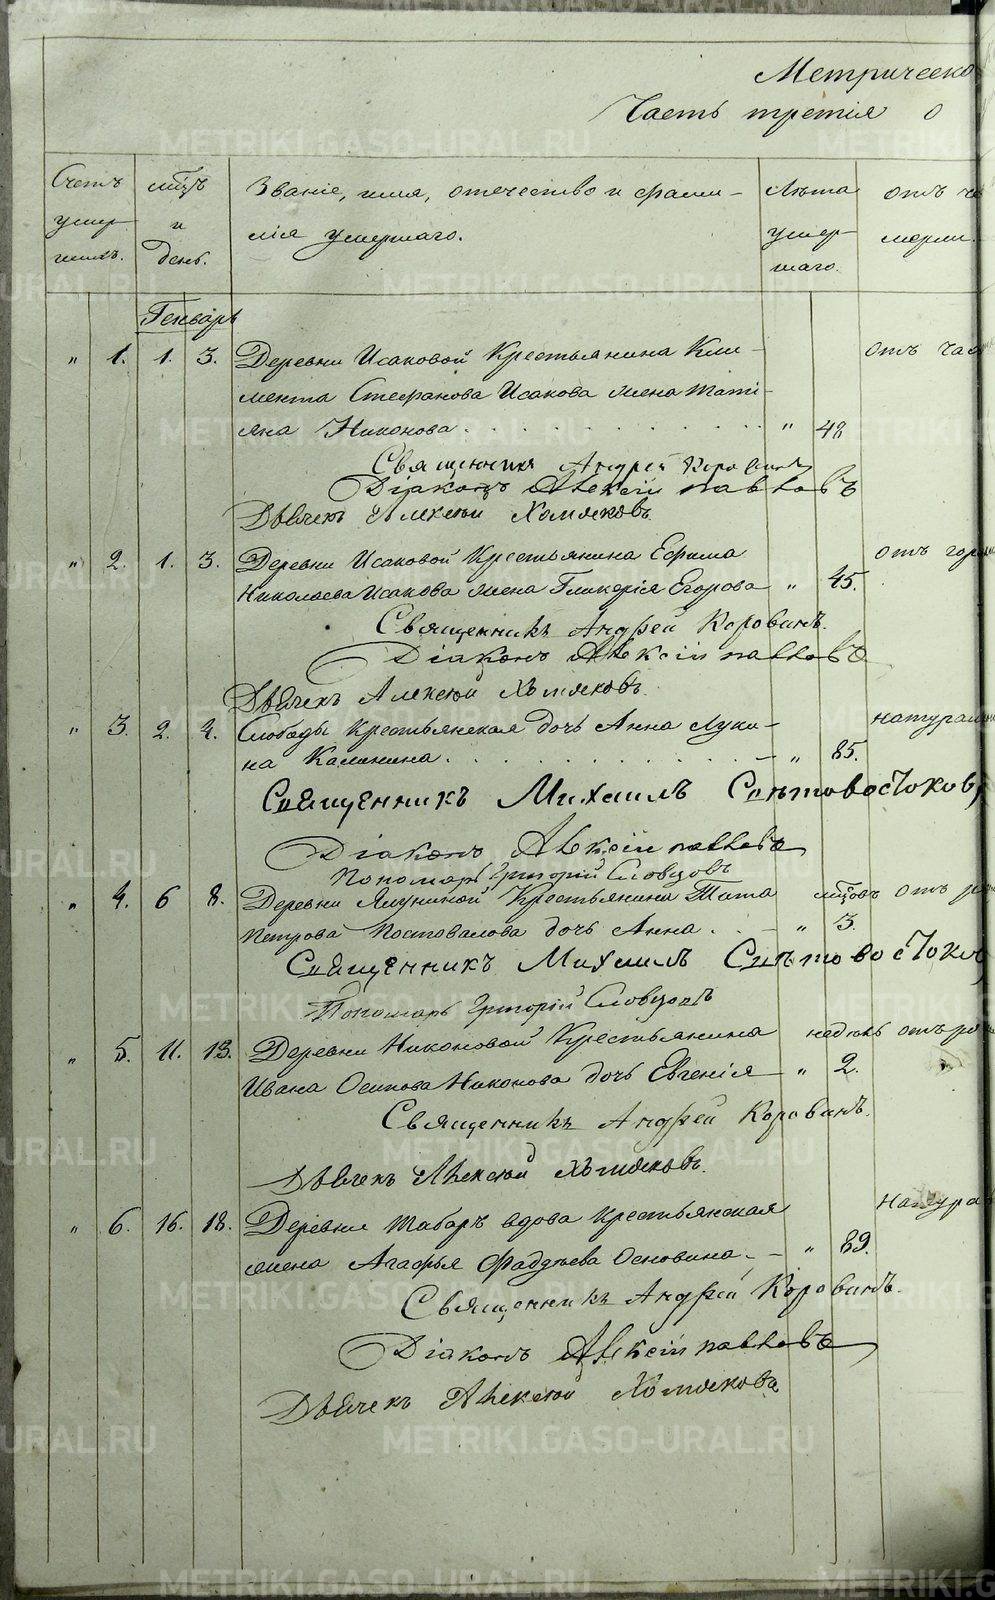 Метрическо
Часть третія о
Счетъ умер- шихъ.
мѣцъ и день.
Званіе, имя, отечество и фами-
лія умершаго.
Лѣта умер- шаго.
отъ че
мерли.
Генварь
" 1. 1. 3. Деревни Исаковой Крестьянина Кли- отъ чах
мента Стефанова Исакова жена Тати-
яна Никонова " 48
Священникъ Андрей Коровинъ
Діаконъ Алексій Павловъ
Дьячекъ Алексѣй Хомяковъ.
" 2. 1. 3. Деревни Исаковой Крестьянина Ефима отъ гор
Николаева Исакова жена Гликерія Егорова " 45.
Священникъ Андрей Коровинъ.
Діаконъ Алексій Павловъ
Дьячекъ Алексѣй Хомяковъ.
" 3. 2. 4. Слободы Крестьянская дочь Анна Луки- натурал
на Калинина " 85.
Священникъ Михаилъ Свѣтовостоковъ
Діаконъ Алексій Павловъ
Пономарь Григорій Словцовъ
" 4. 6 8. Деревни Крестьянина Тита мѣцовъ отъ
Петрова Постовалова дочь Анна " 3.
Священникъ Михаилъ Свѣтовостоков
Пономарь Григорій Словцовъ
" 5. 11. 13. Деревни Никоновой Крестьянина недѣль отъ ро
Ивана Осипова Никонова дочь Евгенія " 2.
Священникъ Андрей Коровинъ.
Дьячекъ Алексѣй Хомяковъ.
" 6. 16. 18. Деревни Табаръ вдова Крестьянская натура
жена Агафья Фаддѣева Основина " 89.
Священникъ Андрей Коровинъ.
Діаконъ Алексій Павловъ
Дьячекъ Алексѣй Хомяковъ
METRIKI.GASO-URAL.RU